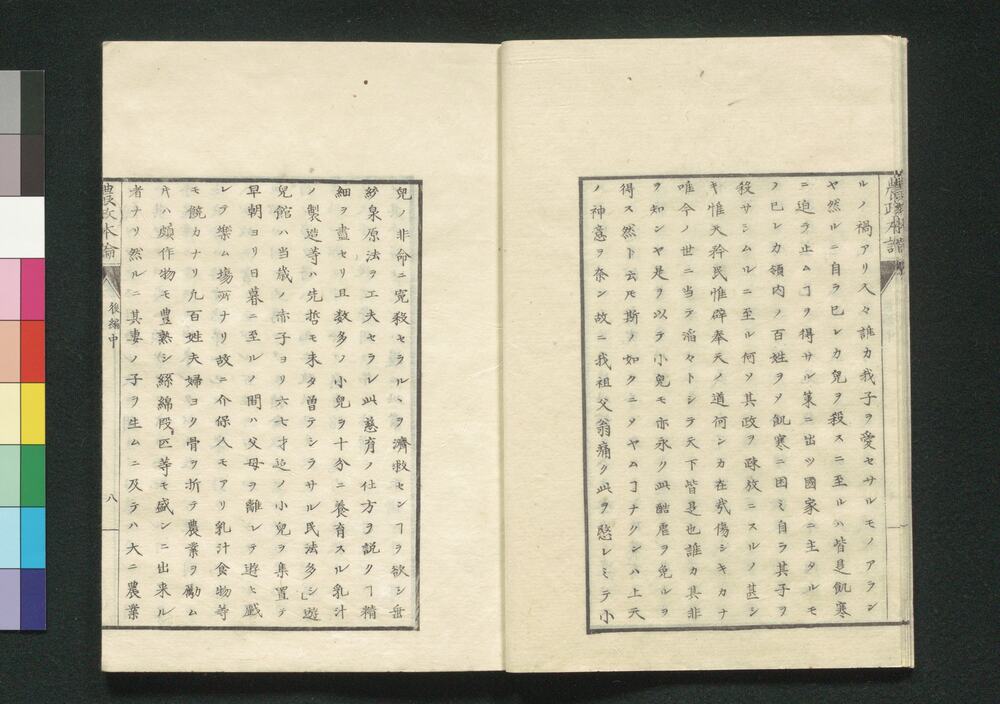 ルノ禍アリ人々誰カ我子ヲ愛セサルモノアラン
ヤ然ルニ自ラ已レカ兒ヲ殺スニ至ルハ皆是飢寒
ニ迫ラ止ムヿヲ得サル業ニ出ツ國家ニ主タルモ
ノ已レカ領内ノ百姓ヲソ飢寒ニ困ミ自ラ其子ヲ
殺サシムルニ至ル何ソ其政ヲ疎放ニスルノ甚シ
キ惟天矜民惟辟奉天ノ道何ンカ在哉傷シキカナ
唯今ノ世ニ当ラ滔々トシラ天下皆是也誰カ其非
ヲ知ンヤ是ヲ以ラ小兒モ亦永ク此酷虐ヲ免ルヲ
得ス然ト云モ斯ノ如クニソヤムヿナクンハ上天
ノ神意ヲ奈ン故ニ我祖父翁痛ク此ヲ愍レミテ小
兒ノ非命ニ寃殺セラルヽヲ濟救センヿヲ欲シ垂
紗泉原法ヲ工夫セラレ此慈育ノ仕方ヲ説クヿ精
細ヲ盡セリ且数多ノ小兒ヲ十分ニ養育スル乳汁
ノ製造等ハ先哲モ未タ曽テシラサル民法多シ遊
兒館ハ当歳ノ赤子ヨリ六七才迄ノ小兒ヲ集置テ
早朝ヨリ日暮ニ至ルノ間ハ父母ヲ離レテ遊ヒ戯
レラ樂ム場所ナリ故ニ介保人モアリ乳汁食物等
モ饒カナリ九百姓夫婦ヨク骨ヲ折テ農業ヲ勵ム
片ハ頗作物モ豊熟シ絲綿段匹等モ盛ンニ出来ル
者ナリ然ルニ其妻ノ子ヲ生ムニ及テハ大ニ農業
農政本論
後編中
八